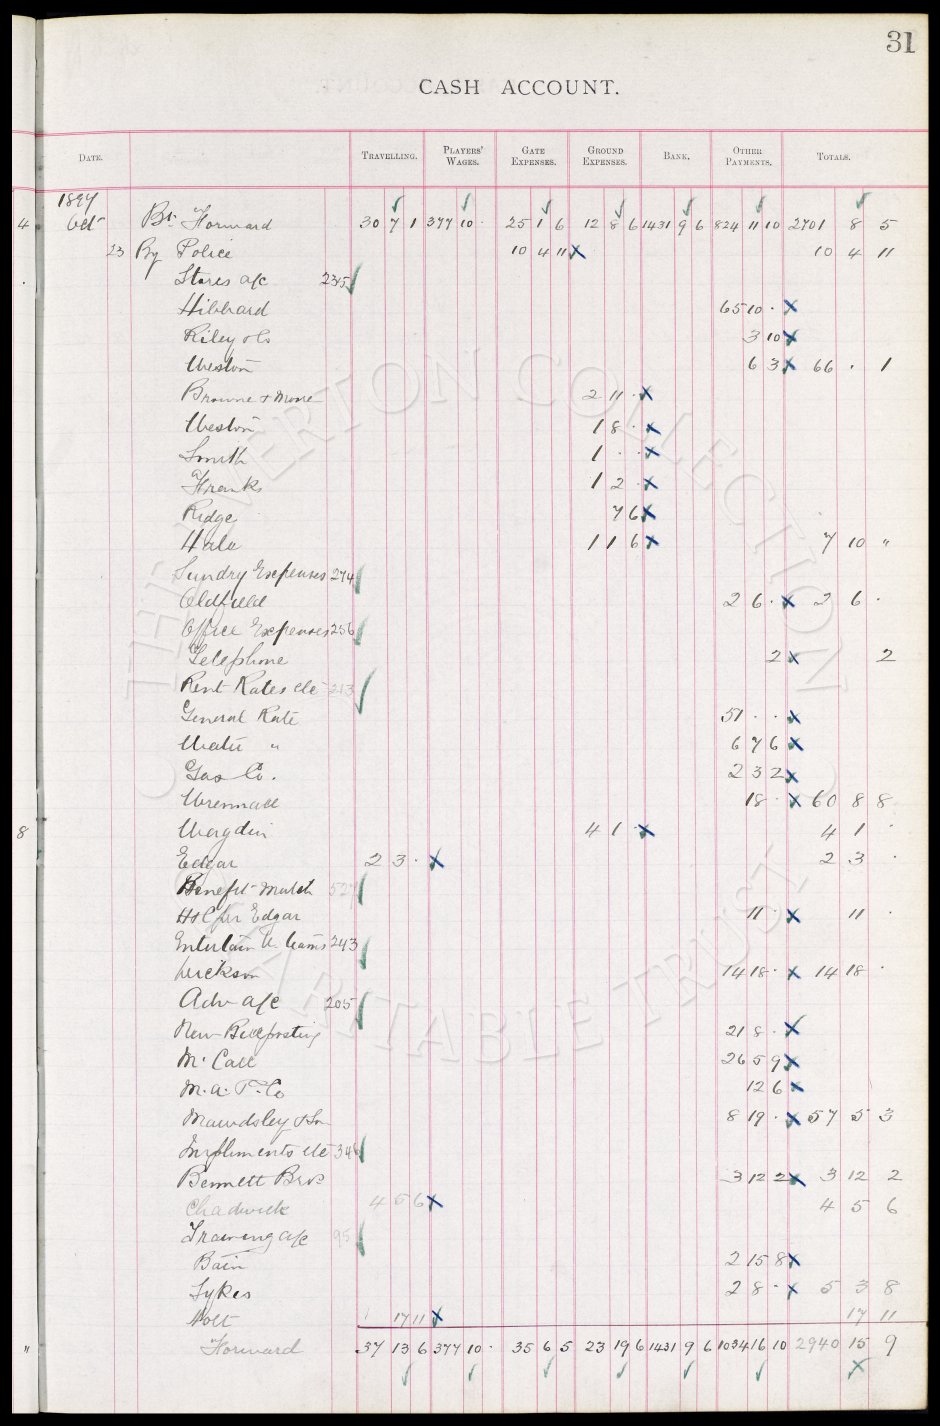 31
CASH ACCOUNT.
DATE. TRAVELLING. PLAYERS' WAGES. GATE EXPENSES. GROUND EXPENSES. BANK. OTHER PAYMENTS. TOTALS.
1897
4 Oct Bt. Forward 30 7 1 377 10 · 25 1 6 12 8 6 1431 9 6 824 11 10 2701 8 5
23 By Police 10 4 11 10 4 11
Stores a/c 235
Hibbard 65 10 ·
Riley & Co 3 10
Weston 6 3 66 · 1
Browne & Moore 2 11 ·
Weston 1 8 ·
Smith 1 · ·
Franks 1 2 ·
Ridge 7 6
Hale 1 1 6 7 10 "
Sundry Expenses 274
Oldfield 2 6 · 2 6 ·
Office Expenses 256
Telephone 2 2
Rent Rates etc 213
General Rate 51 · ·
Water " 6 7 6
Gas Co. 2 3 2
Wrennall 18 · 60 8 8
8 4 1 · 4 1 ·
Edgar 2 3 · 2 3 ·
Benefit Match
Edgar 11 · 11 ·
Entertain Teams 243
14 18 · 14 18 ·
Adv a/c 205
New Billposting 21 8 ·
McCall 26 5 9
M.A. T. Co 12 6
Mawdsley & Son 8 19 · 57 5 3
Impliments etc 346
Bennett Bros 3 12 2 3 12 2
Chadwick 4 5 6 4 5 6
Training a/c 95
Bain 2 15 8
Sykes 2 8 · 5 3 8
Holt 17 11 17 11
" Forward 37 13 6 377 10 · 35 6 5 23 19 6 1431 9 6 1034 16 10 2940 15 9
THE EVERTON COLLECTION CHARITABLE TRUST